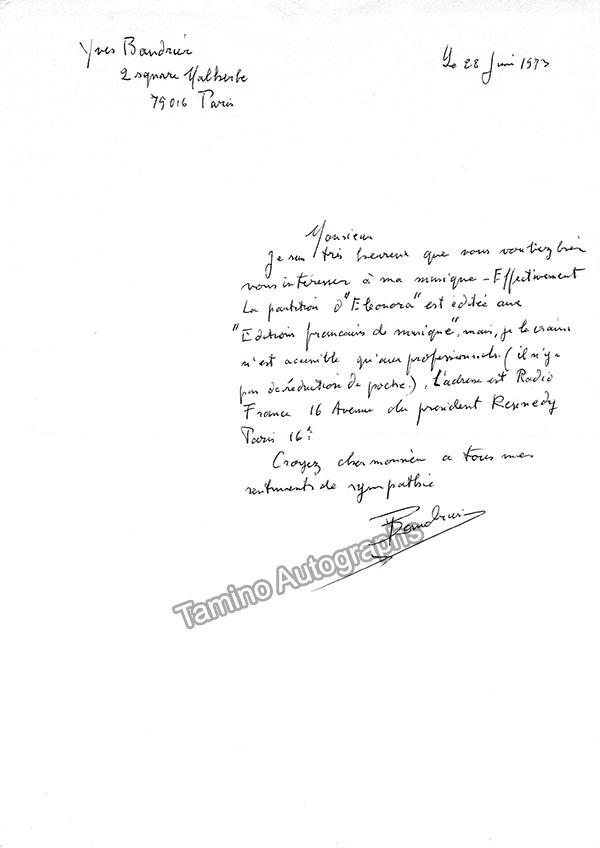 Yves Baudrier
Le 28 Juin 1973
2 square Malherbe
75016 Paris
Monsieur
Je suis très heureux que vous vouliez bien
vous intéresser à ma musique - Effectivement
La partition d'"Eleonora" est éditée aux
"Editions français de musique", mais, je le crains
n'est accessible qu'aux professionnels. (il n'y a
pas de réduction de poche.). L'adresse est Radio
France 16 Avenue du president Kennedy
Paris 16e
Croyez cher monsieur a tous mes
sentiments de sympathie
YBaudrier
Tamino Autographs